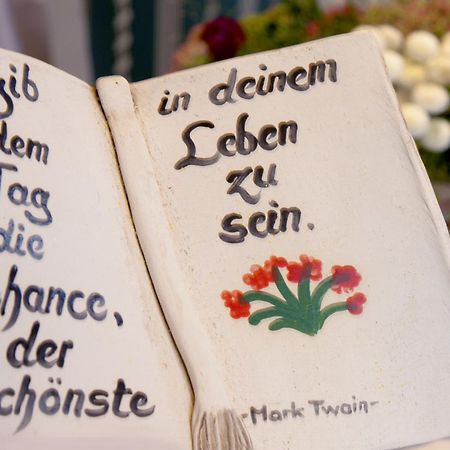 gib
dem
Tag
die
Chance,
der
schönste
in deinem
Leben
zu
sein.
-Mark Twain-